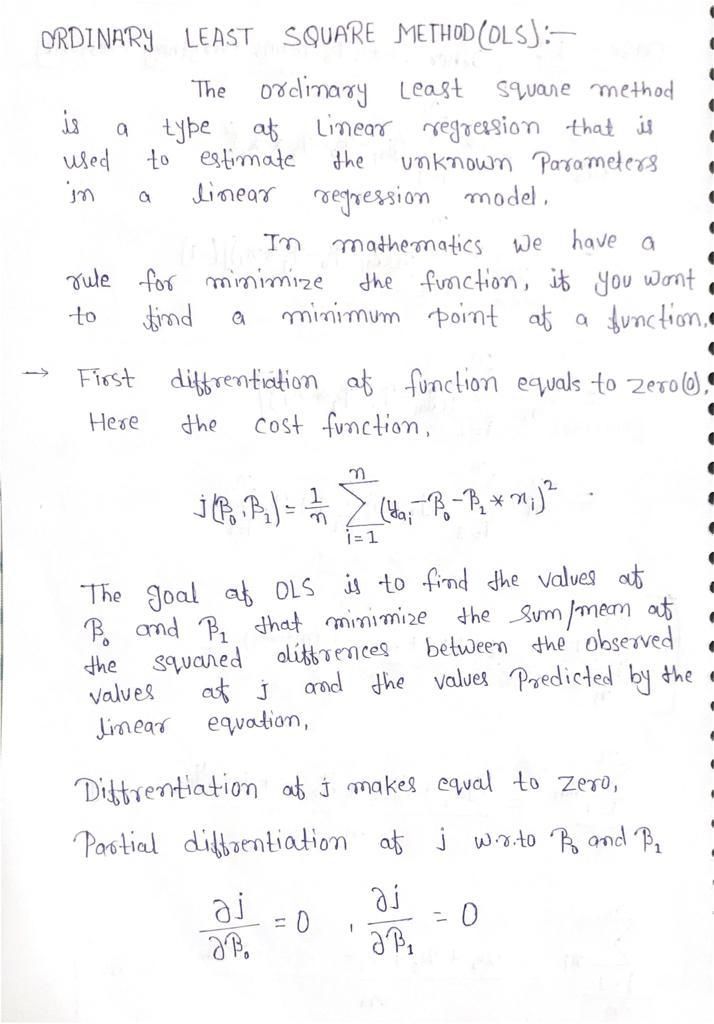 ORDINARY LEAST SQUARE METHOD(OLS):-
The ordinary Least square method
is a type of Linear regression that is
used to estimate the unknown Parameters
in a linear regression model.
In mathematics we have a
rule for minimize the function, if you want
to find a minimum point of a function.
→ First diffrentiation of function equals to zero(0).
Here the cost function,
j(β₀,β₁) = 1/n Σ_{i=1}^{n} (y_{ai} - β₀ - β₁ * x_i)²
The goal of OLS is to find the values of
β₀ and β₁ that minimize the sum/mean of
the squared diffrences between the observed
values of j and the values Predicted by the
linear equation,
Diffrentiation of j makes equal to zero,
Partial diffrentiation of j w.r.to β₀ and β₁
∂j/∂β₀ = 0 , ∂j/∂β₁ = 0